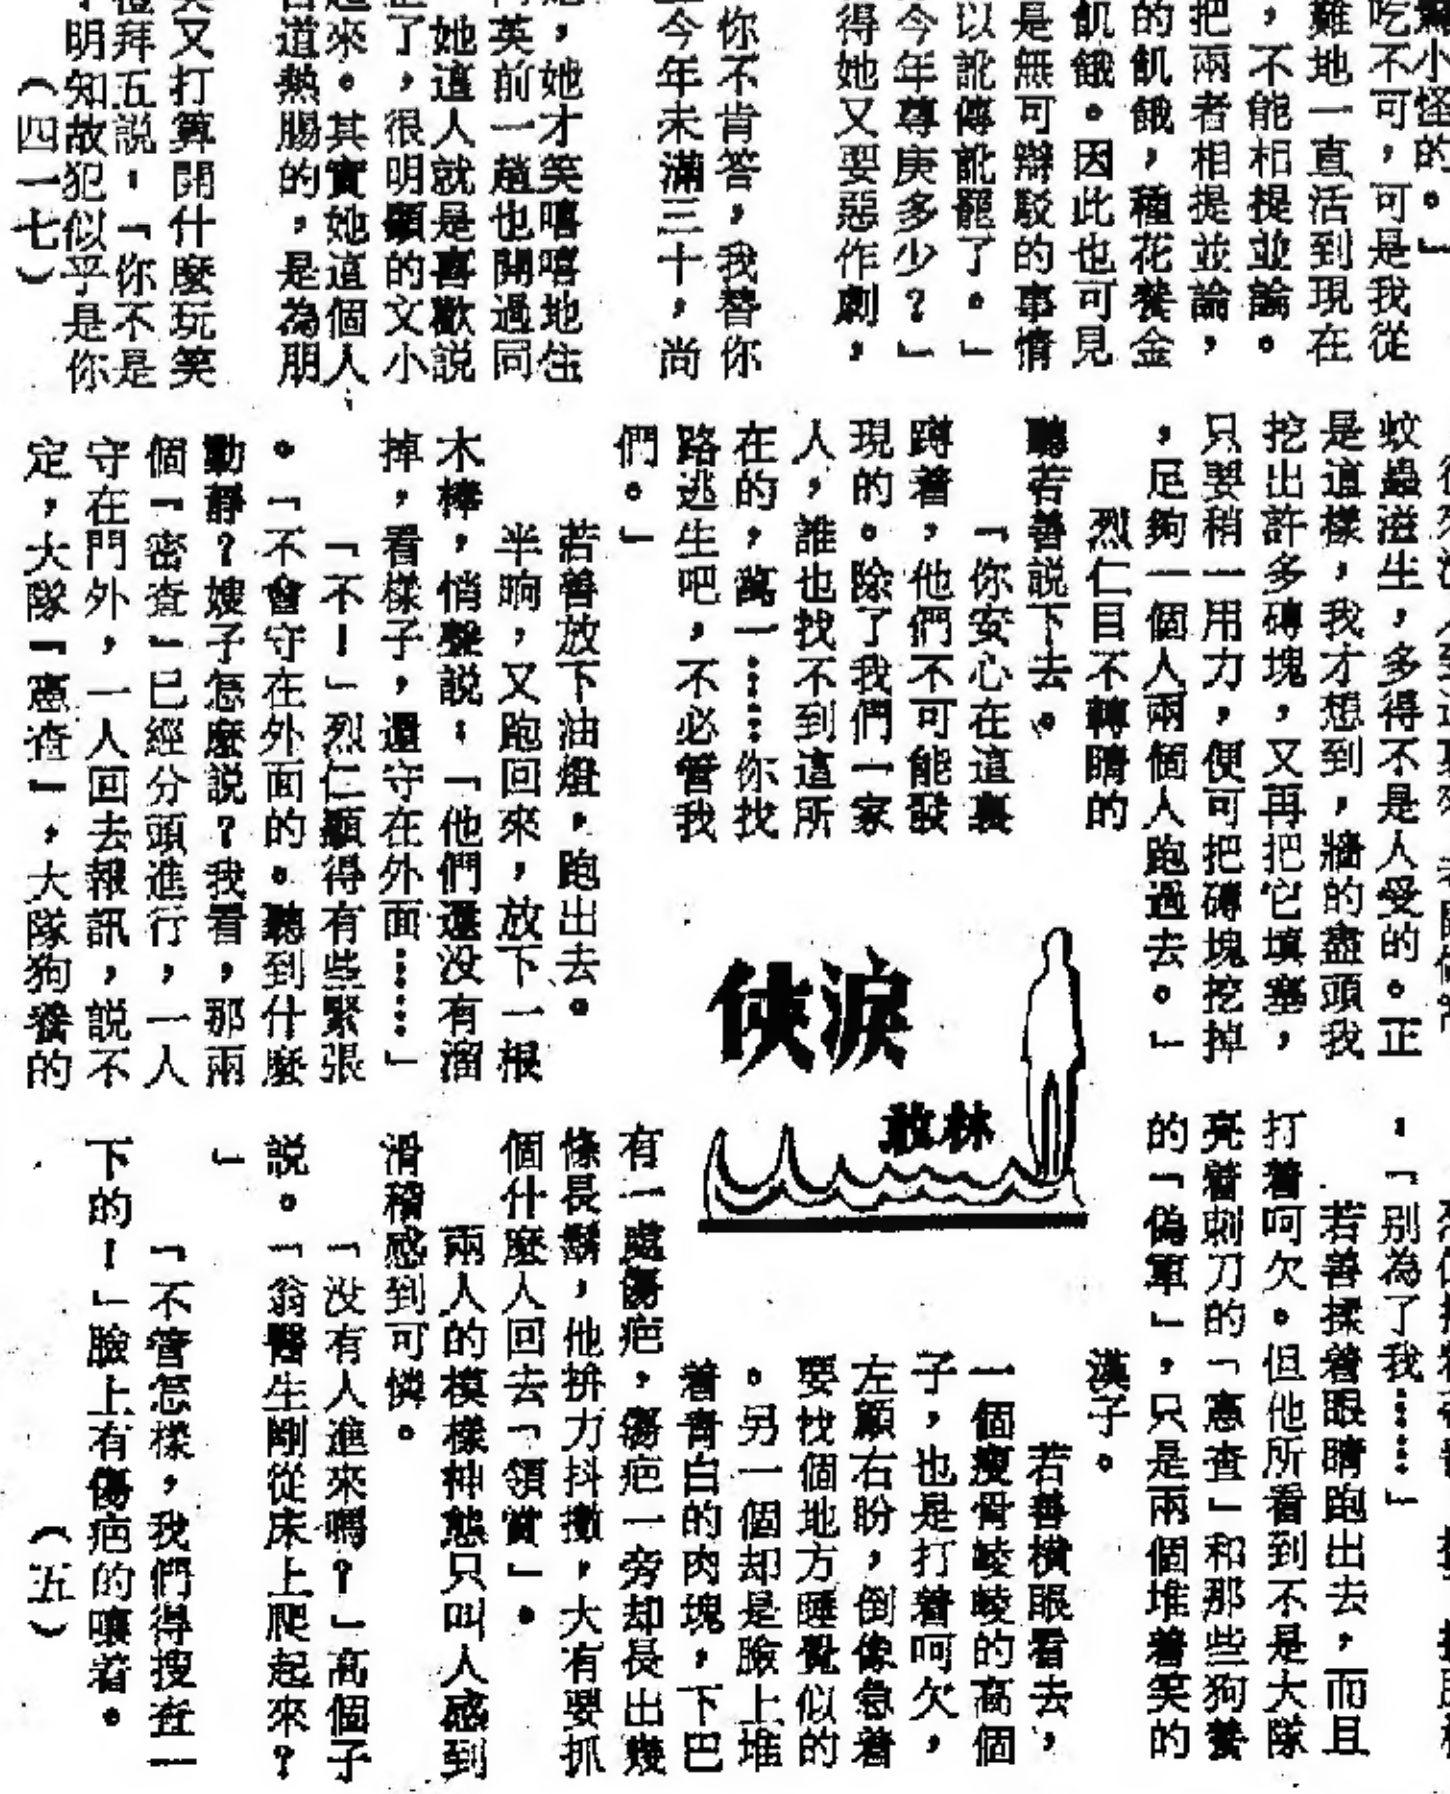 驚小怪的。」
吃不可，可是我從
難地一直活到現在
，不能相提並論。
把兩者相提並論，
的飢餓，種花養金
飢餓。因此也可見
是無可辯駁的事情
以訛傳訛罷了。」
今年尊庚多少？」
得她又要惡作劇，
你不肯答，我替你
今年未滿三十，尚
，她才笑嘻嘻地住
英前一趟也開過同
她這人就是喜歡説
了，很明顯的文小
來。其實她這個人
道熱腸的，是為朋
又打算開什麼玩笑
禮拜五説：「你不是
明知故犯似乎是你
（四一七）
蚊蟲滋生，多得不是人受的。正
是這樣，我才想到，牆的盡頭我
挖出許多磚塊，又再把它填塞，
只要稍一用力，便可把磚塊挖掉
，足夠一個人兩個人跑過去。」
烈仁目不轉睛的
聽若善説下去。
「你安心在這裏
蹲着，他們不可能發
現的。除了我們一家
人，誰也找不到這所
在的，萬一……你找
路逃生吧，不必管我
們。」
若善放下油燈，跑出去。
半晌，又跑回來，放下一根
木棒，悄聲説：「他們還没有溜
掉，看樣子，還守在外面……」
「不！」烈仁顯得有些緊張
。「不會守在外面的。聽到什麼
動靜？嫂子怎麼説？我看，那兩
個「密查」已經分頭進行，一人
守在門外，一人回去報訊，説不
定，大隊「憲查」，大隊狗養的
淚
林敢
：「別為了我……」
若善揉着眼睛跑出去，而且
打着呵欠。但他所看到不是大隊
亮着刺刀的「憲查」和那些狗養
的「偽軍」，只是兩個堆着笑的
漢子。
若善橫眼看去，
一個瘦骨崚崚的高個
子，也是打着呵欠，
左顧右盼，倒像急着
要找個地方睡覺似的
。另一個却是臉上堆
着青白的肉塊，下巴
有一處傷疤，傷疤一旁却長出幾
條長鬍，他拚力抖擻，大有要抓
個什麼人回去「領賞」。
兩人的模樣神態只叫人感到
滑稽感到可憐。
「没有人進來嗎？」高個子
説。「翁醫生剛從床上爬起來？
」
「不管怎樣，我們得搜查一
下的！」臉上有傷疤的嚷着。
（五）